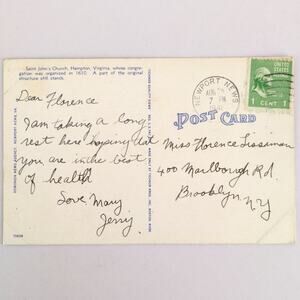 Saint John's Church, Hampton, Virginia, whose congre-
gation was organized in 1610. A part of the original
structure still stands.
Dear Florence
I am taking a long
rest here hoping that
you are in the best
of health
Love, Mary
Jerry
NEWPORT NEWS
7 PM
UNITED STATES
1 CENT 1
POST CARD
Miss Florence Lissiman
400 Marlborough Rd.
Brooklyn
N.Y